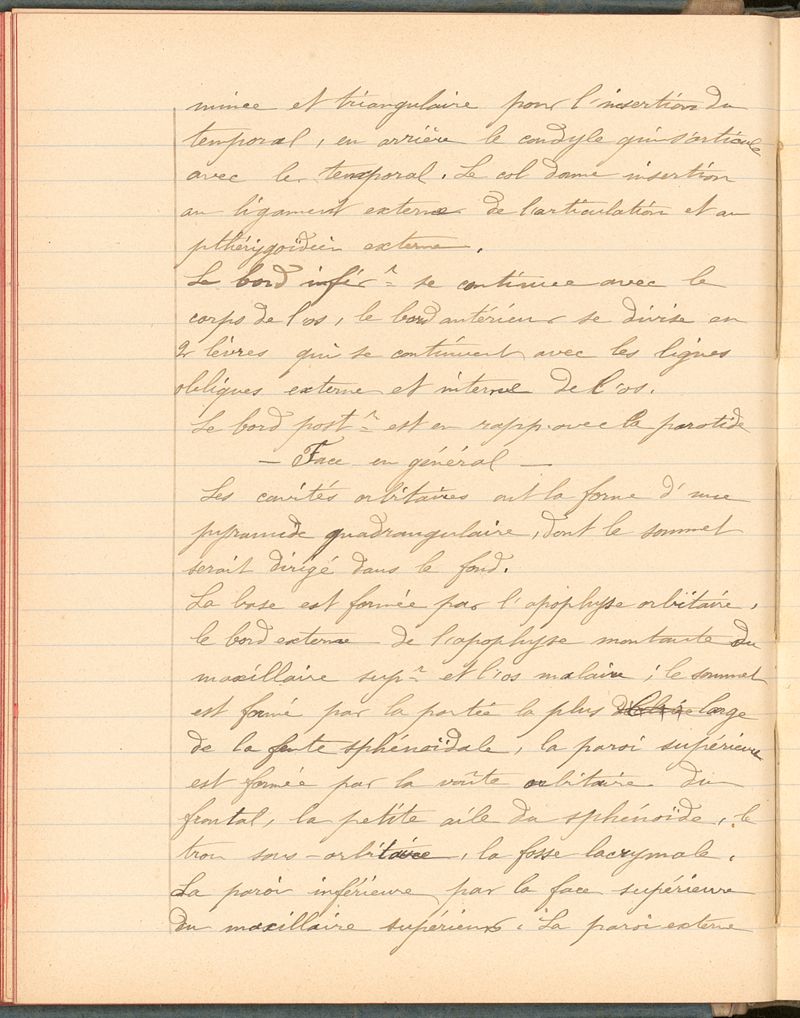 mince et triangulaire pour l'insertion du
temporal, en arrière le condyle qui s'articule
avec le temporal. Le col donne insertion
au ligament externe de l'articulation et au
pthérygoïdien externe.
Le bord infér r se continue avec le
corps de l'os, le bord antérieur se divise en
2 lèvres qui se continuent avec les lignes
obliques externe et interne de l'os.
Le bord post r est en rapp. avec la parotide
— Face en général —
Les cavités orbitaires ont la forme d'une
pyramide quadrangulaire, dont le sommet
serait dirigé dans le fond.
La base est formée par l'apophyse orbitaire,
le bord externe de l'apophyse montante du
maxillaire sup r et l'os malaire ; le sommet
est formé par la partie la plus large
de la fente sphénoïdale, la paroi supérieure
est formée par la voûte orbitaire du
frontal, la petite aile du sphénoïde, le
trou sous-orbitaire, la fosse lacrymale.
La paroi inférieure par la face supérieure
du maxillaire supérieur. La paroi externe